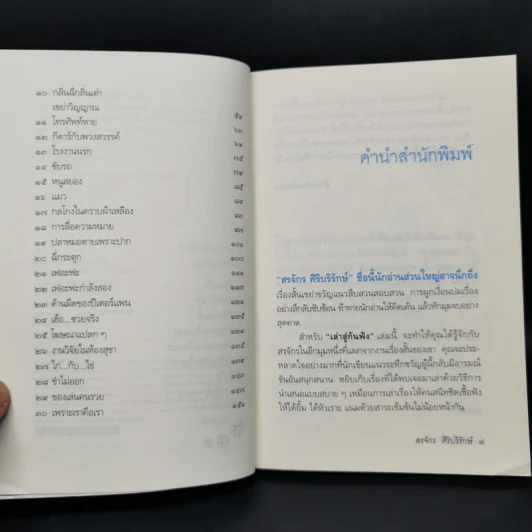 ๑๐ กลิ่นฉี่กลิ่นเต่า
เขย่าวิญญาณ ๕๘
๑๑ โทรศัพท์หาย ๖๓
๑๒ กีตาร์กับพวงสวรรค์ ๖๘
๑๓ โรงงานนรก ๗๕
๑๔ ขับรถ
๑๕ หนูสยอง ๘๕
๑๖ แมว
๑๗ กลโกงในคราบผ้าเหลือง
๑๘ การสื่อความหมาย
๑๙ ปลาหมอตายเพราะปาก ๑๐๑
๒๐ ฉี่กระตุก ๑๐๗
๒๑ เฟอะฟะ
๒๒ เฟอะฟะกำลังสอง
๒๓ ด้านมืดของปีเตอร์แพน
๒๔ เฮ้อ...ซวยจริง
๒๕ โฆษณาแปลก ๆ
๒๖ งานวิจัยในห้องสุขา
๒๗ ไก่...กับ...ไข่
๒๘ ขำไม่ออก
๒๙ ของเล่นคนรวย
๓๐ เพราะเราคือเรา
คำนำสำนักพิมพ์
“สรจักร ศิริบริรักษ์” ชื่อนี้นักอ่านส่วนใหญ่อาจนึกถึง
เรื่องสั้นเขย่าขวัญแนวสืบสวนสอบสวน การผูกเงื่อนปมเรื่อง
อย่างลึกลับซับซ้อน ท้าทายนักอ่านให้คิดค้น แล้วหักมุมจบอย่าง
สุดคาด
สำหรับ “เล่าสู่กันฟัง” เล่มนี้ จะทำให้คุณได้รู้จักกับ
สรจักรในอีกมุมหนึ่งที่แผกจากงานเรื่องสั้นของเขา คุณจะประ-
หลาดใจอย่างมากที่นักเขียนแนวระทึกขวัญผู้นี้กลับมีอารมณ์
ขันอันสนุกสนาน หยิบเก็บเรื่องที่ได้พบเจอมาเล่าด้วยวิธีการ
นำเสนอแบบสบาย ๆ เหมือนการเล่าเรื่องให้คนสนิทชิดเชื้อฟัง
ให้ได้ยิ้ม ได้หัวเราะ แนมด้วยสาระเข้มข้นไม่น้อยหน้ากัน
สรจักร ศิริบริรักษ์ ๘